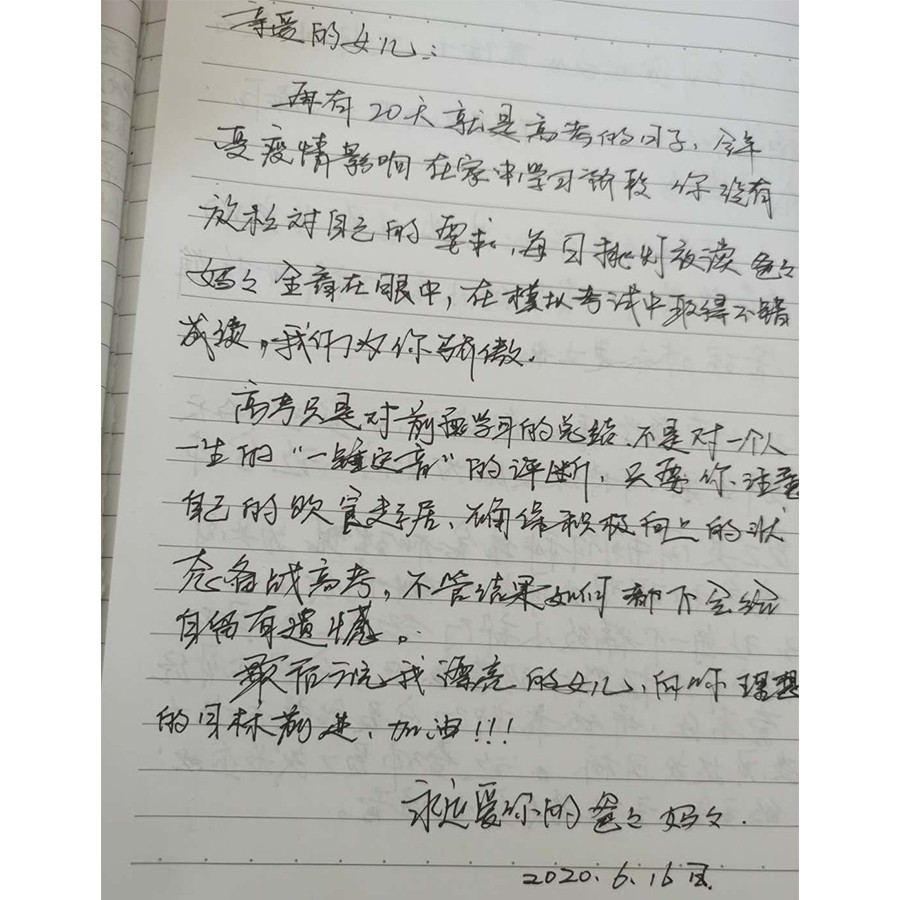 亲爱的女儿:
再有20天就是高考的日子、今年
受疫情影响在家中学习 你没有
放松对自己的要求,每日挑灯夜读爸々
妈々全看在眼中,在模拟考试中取得不错
成绩,我们为你骄傲.
高考只是对前面学习的总结、不是对一个人
一生的“一锤定音”的评断,只要你注重
自己的饮食起居、确保积极向上的状
态备战高考,不管结果如何都不会给
自留有遗憾。
最后祝我漂亮的女儿、向你理想
的目标前进、加油!!!
永远爱你的爸々妈々.
2020.6.16日.